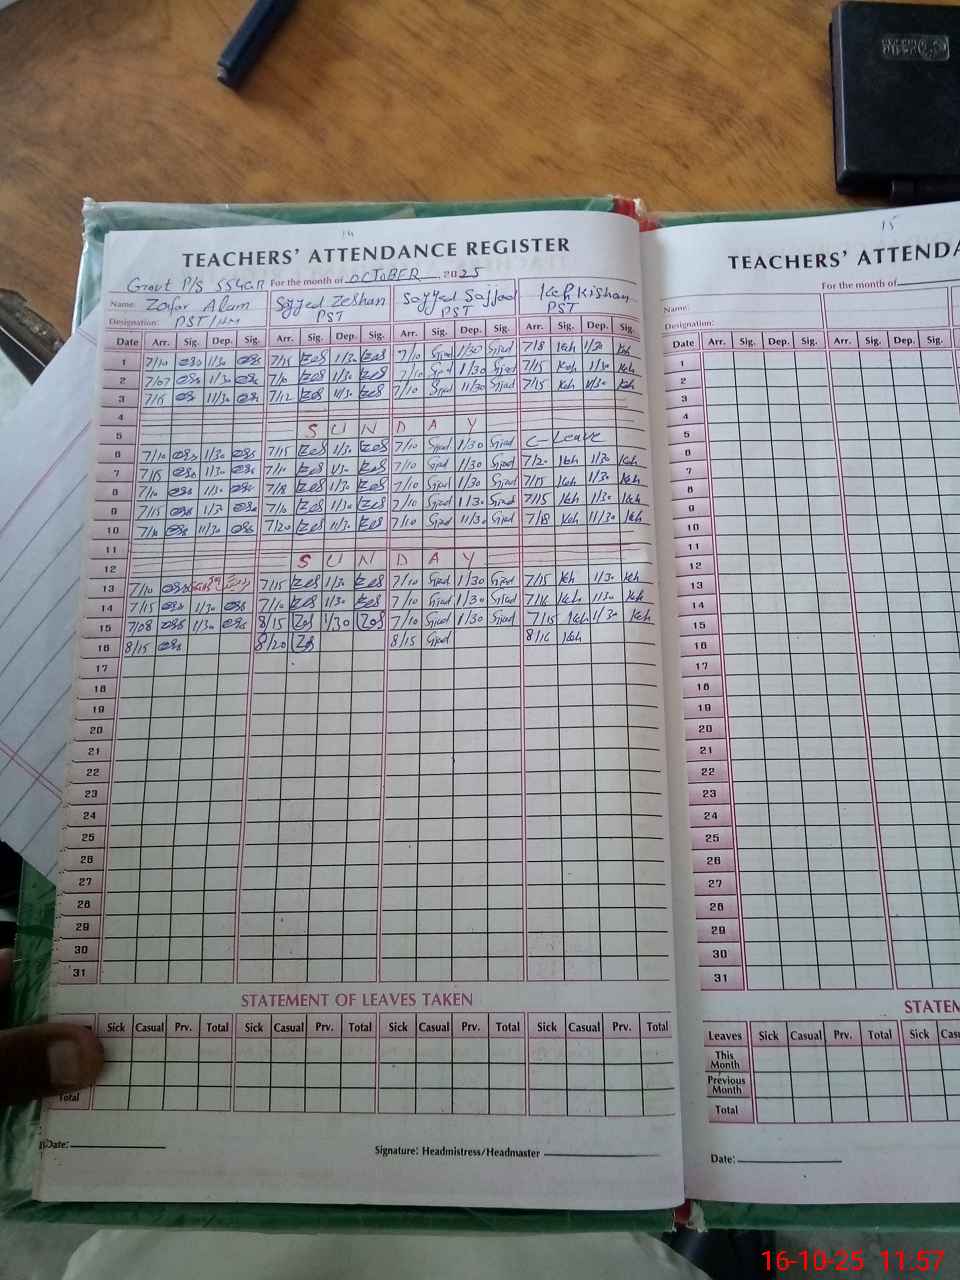 14
TEACHERS' ATTENDANCE REGISTER
Govt P/S 554GR For the month of OCTOBER 2025
Name: Zafar Alam Sayyed Zeshan Sayyed Sajjad Keh Kishan
Designation: PST/HM PST PST PST
Date Arr. Sig. Dep. Sig. Arr. Sig. Dep. Sig. Arr. Sig. Dep. Sig. Arr. Sig. Dep. Sig.
1 7/10 1/30 7/15 Zes 1/30 Zes 7/10 Sjad 1/30 Sjad 7/18 Keh 1/30 Keh
2 7/07 11/30 7/10 Zes 1/30 Zes 7/10 Sjad 1/30 Sjad 7/15 Keh 1/30 Keh
3 7/15 11/30 7/12 Zes 11/30 Zes 7/10 Sjad 11/30 Sjad 7/15 Keh 11/30 Keh
4
5 S U N D A Y
6 7/10 1/30 7/15 Zes 1/30 Zes 7/10 Sjad 1/30 Sjad C-Leave
7 7/15 1/30 7/10 Zes 1/30 Zes 7/10 Sjad 1/30 Sjad 7/20 Keh 1/30 Keh
8 7/10 1/30 7/18 Zes 1/30 Zes 7/10 Sjad 1/30 Sjad 7/15 Keh 1/30 Keh
9 7/15 1/30 7/10 Zes 1/30 Zes 7/10 Sjad 1/30 Sjad 7/15 Keh 1/30 Keh
10 7/10 11/30 7/20 Zes 11/30 Zes 7/10 Sjad 11/30 Sjad 7/18 Keh 11/30 Keh
11
12 S U N D A Y
13 7/10 7/15 Zes 1/30 Zes 7/10 Sjad 1/30 Sjad 7/15 Keh 1/30 Keh
14 7/15 1/30 7/10 Zes 1/30 Zes 7/10 Sjad 1/30 Sjad 7/16 Keh 1/30 Keh
15 7/08 1/30 8/15 Zes 1/30 Zes 7/10 Sjad 1/30 Sjad 7/15 Keh 1/30 Keh
16 8/15 8/20 Zes 8/15 Sjad 8/16 Keh
17
18
19
20
21
22
23
24
25
26
27
28
29
30
31
STATEMENT OF LEAVES TAKEN
Sick Casual Prv. Total Sick Casual Prv. Total Sick Casual Prv. Total Sick Casual Prv. Total
Total
Date:
Signature: Headmistress/Headmaster
15
TEACHERS' ATTENDA
For the month of
Name:
Designation:
Date Arr. Sig. Dep. Sig. Arr. Sig. Dep.
1
2
3
4
5
6
7
8
9
10
11
12
13
14
15
16
17
18
19
20
21
22
23
24
25
26
27
28
29
30
31
STATEM
Leaves Sick Casual Prv. Total Sick Casu
This Month
Previous Month
Total
Date:
16-10-25 11.57